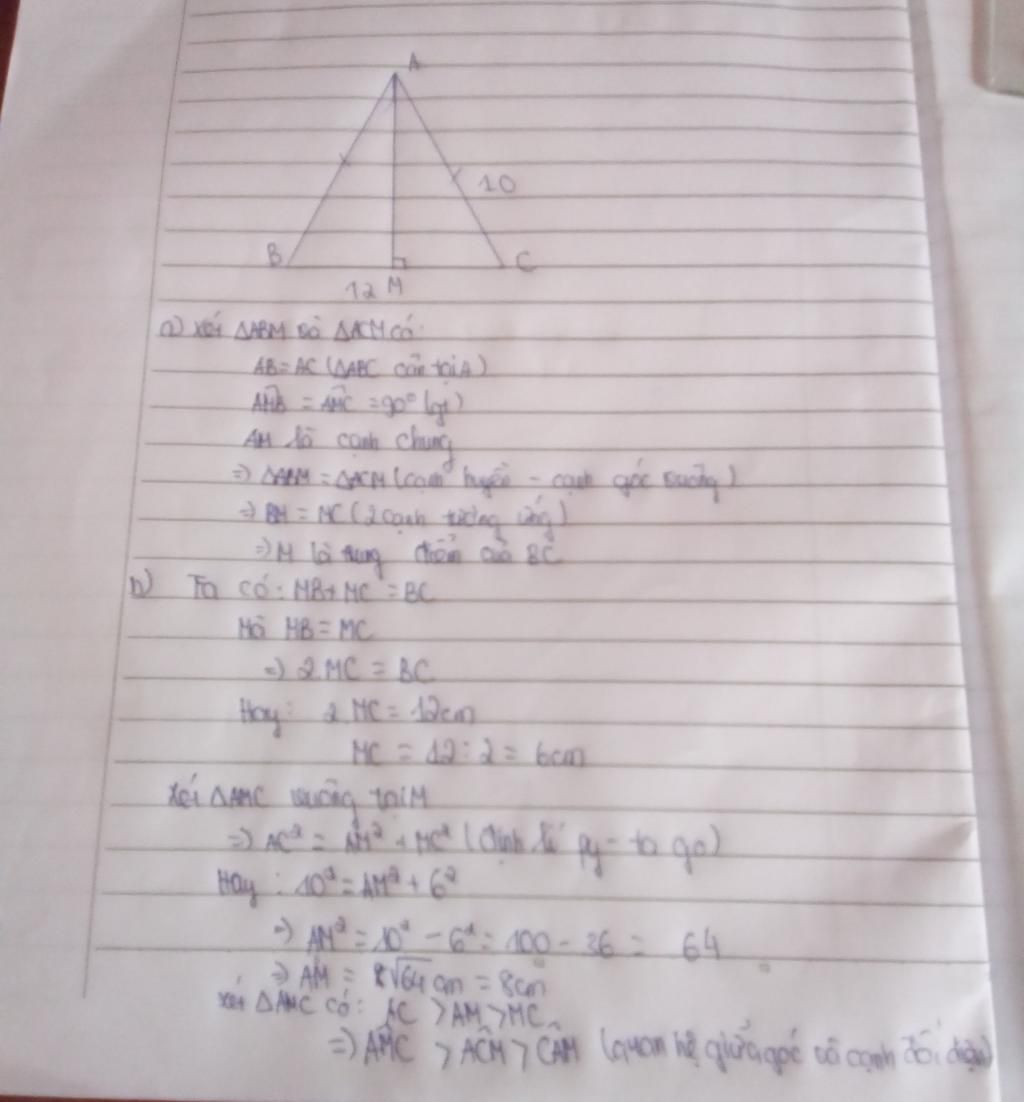 A
10
B
C
12 M
a) Xét ΔABM và ΔACM có:
AB = AC (ΔABC cân tại A)
AMB = AMC = 90° (gt)
AM là cạnh chung
=> ΔABM = ΔACM (cạnh huyền - cạnh góc vuông)
=> BM = MC (2 cạnh tương ứng)
=> M là trung điểm của BC
b) Ta có: MB + MC = BC
Mà MB = MC
=> 2.MC = BC
Hay: 2.MC = 12cm
MC = 12 : 2 = 6cm
Xét ΔAMC vuông tại M
=> AC² = AM² + MC² (định lí py-ta go)
Hay : 10² = AM² + 6²
=> AM² = 10² - 6² = 100 - 36 = 64
=> AM = √64 cm = 8cm
Xét ΔAMC có: AC > AM > MC
=> AMC > ACM > CAM (quan hệ giữa góc và cạnh đối diện)